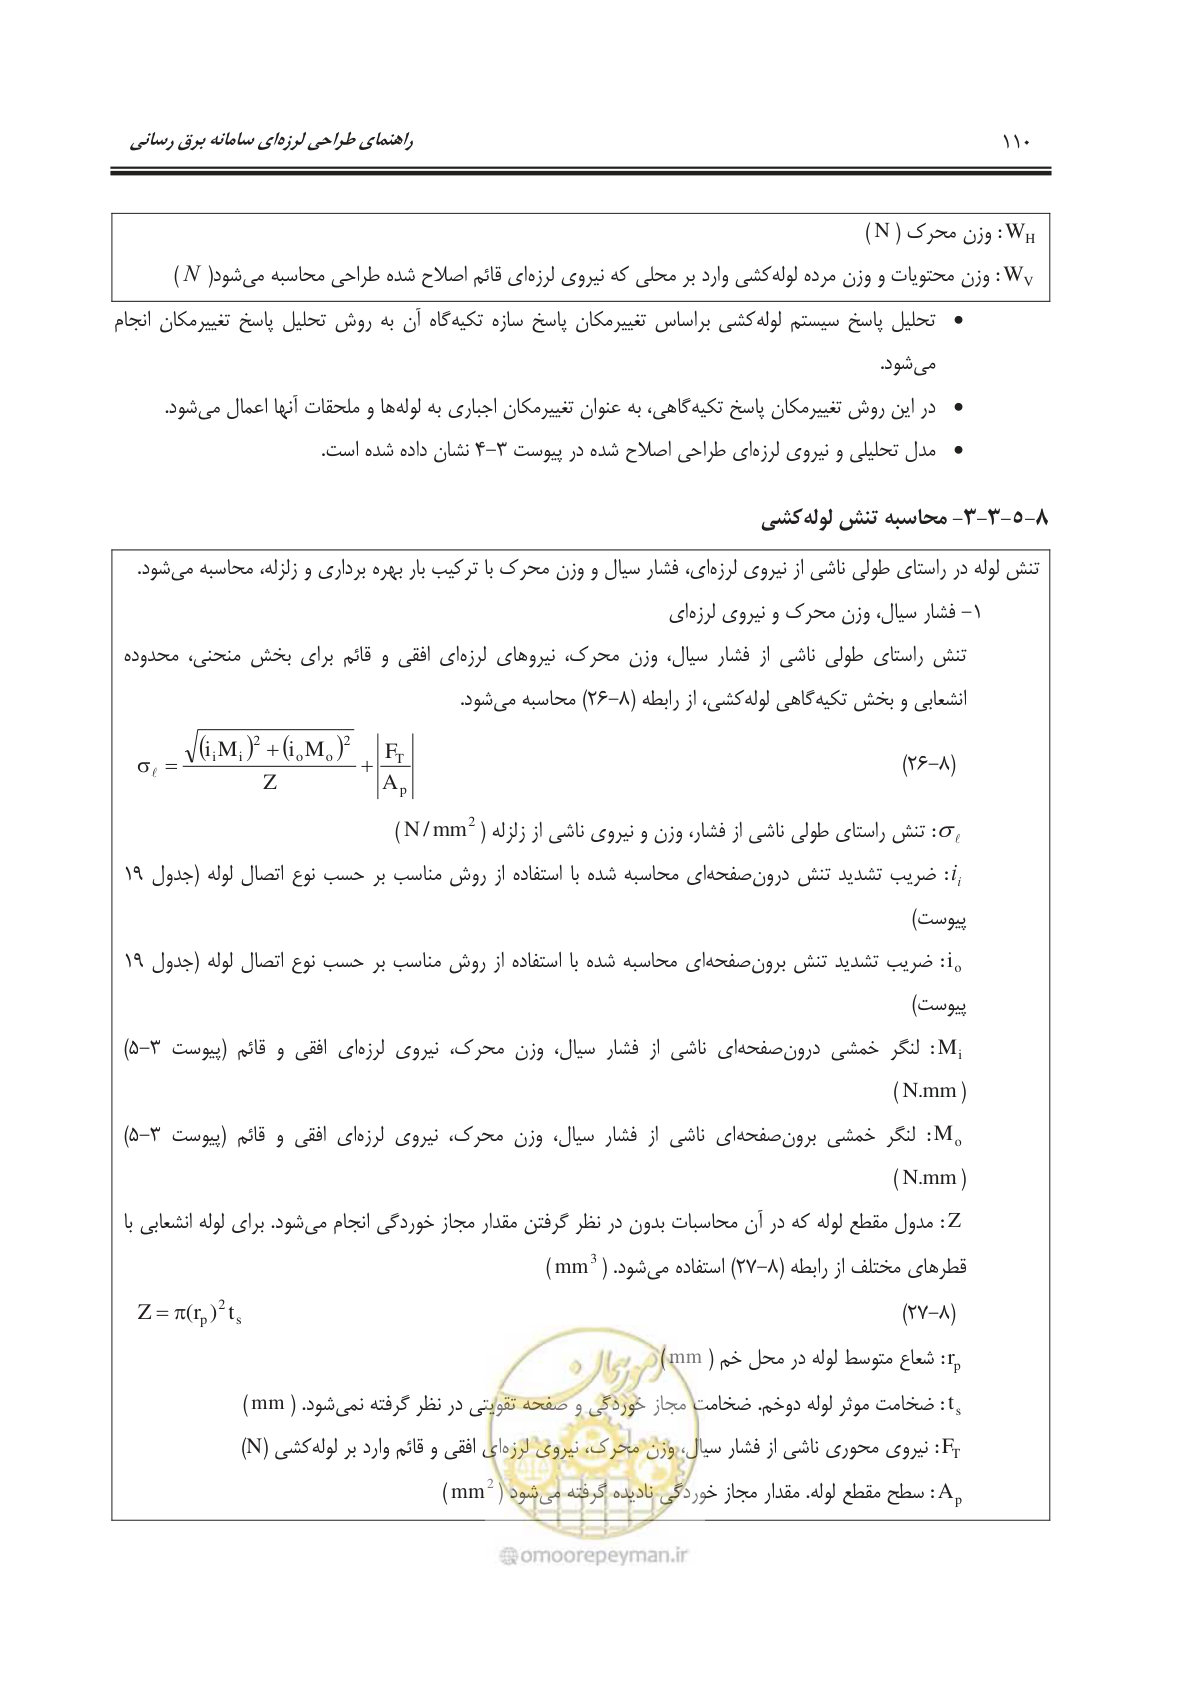 ۱۱۰ راهنمای طراحی لرزه‌ای سامانه برق رسانی
W_H: وزن محرک ( N )
W_V: وزن محتویات و وزن مرده لوله‌کشی وارد بر محلی که نیروی لرزه‌ای قائم اصلاح شده طراحی محاسبه می‌شود( N )
• تحلیل پاسخ سیستم لوله‌کشی براساس تغییرمکان پاسخ سازه تکیه‌گاه آن به روش تحلیل پاسخ تغییرمکان انجام
می‌شود.
• در این روش تغییرمکان پاسخ تکیه‌گاهی، به عنوان تغییرمکان اجباری به لوله‌ها و ملحقات آنها اعمال می‌شود.
• مدل تحلیلی و نیروی لرزه‌ای طراحی اصلاح شده در پیوست ۳-۴ نشان داده شده است.
۸-۵-۳-۳- محاسبه تنش لوله‌کشی
تنش لوله در راستای طولی ناشی از نیروی لرزه‌ای، فشار سیال و وزن محرک با ترکیب بار بهره برداری و زلزله، محاسبه می‌شود.
۱- فشار سیال، وزن محرک و نیروی لرزه‌ای
تنش راستای طولی ناشی از فشار سیال، وزن محرک، نیروهای لرزه‌ای افقی و قائم برای بخش منحنی، محدوده
انشعابی و بخش تکیه‌گاهی لوله‌کشی، از رابطه (۸-۲۶) محاسبه می‌شود.
(۸-۲۶) σ_ℓ = √((i_i M_i)^2 + (i_o M_o)^2) / Z + |F_T / A_p|
σ_ℓ: تنش راستای طولی ناشی از فشار، وزن و نیروی ناشی از زلزله ( N/mm^2 )
i_i: ضریب تشدید تنش درون‌صفحه‌ای محاسبه شده با استفاده از روش مناسب بر حسب نوع اتصال لوله (جدول ۱۹
پیوست)
i_o: ضریب تشدید تنش برون‌صفحه‌ای محاسبه شده با استفاده از روش مناسب بر حسب نوع اتصال لوله (جدول ۱۹
پیوست)
M_i: لنگر خمشی درون‌صفحه‌ای ناشی از فشار سیال، وزن محرک، نیروی لرزه‌ای افقی و قائم (پیوست ۳-۵)
( N.mm )
M_o: لنگر خمشی برون‌صفحه‌ای ناشی از فشار سیال، وزن محرک، نیروی لرزه‌ای افقی و قائم (پیوست ۳-۵)
( N.mm )
Z: مدول مقطع لوله که در آن محاسبات بدون در نظر گرفتن مقدار مجاز خوردگی انجام می‌شود. برای لوله انشعابی با
قطرهای مختلف از رابطه (۸-۲۷) استفاده می‌شود. ( mm^3 )
(۸-۲۷) Z = π(r_p)^2 t_s
r_p: شعاع متوسط لوله در محل خم ( mm )
t_s: ضخامت موثر لوله دوخم. ضخامت مجاز خوردگی و صفحه تقویتی در نظر گرفته نمی‌شود. ( mm )
F_T: نیروی محوری ناشی از فشار سیال، وزن محرک، نیروی لرزه‌ای افقی و قائم وارد بر لوله‌کشی (N)
A_p: سطح مقطع لوله. مقدار مجاز خوردگی نادیده گرفته می‌شود ( mm^2 )
امور پیمان
@omoorepeyman.ir